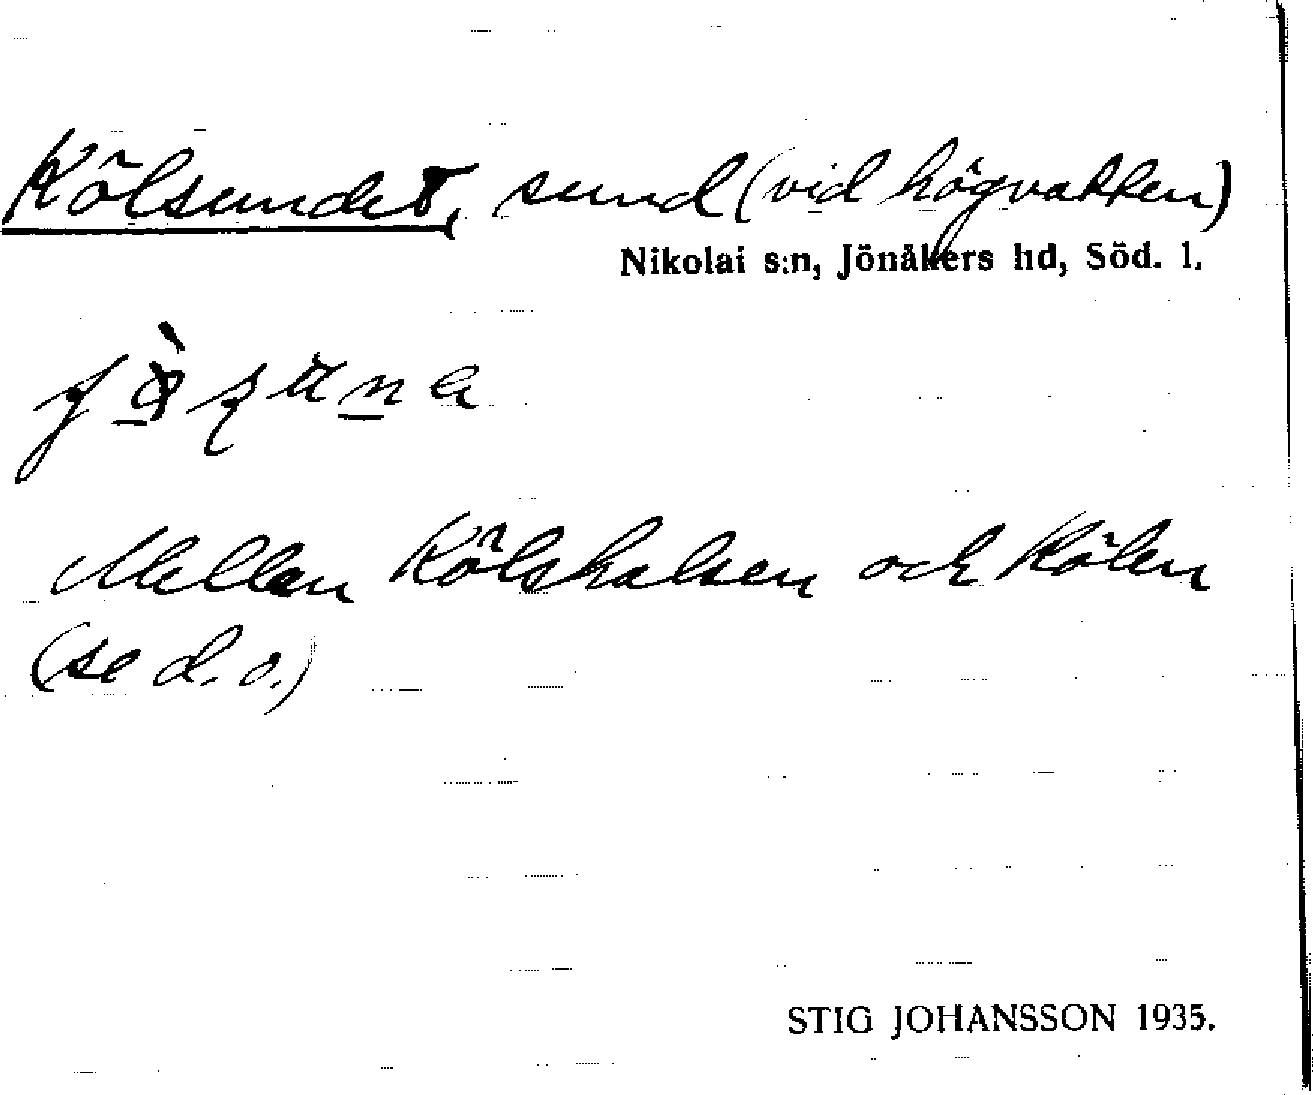 Kölsundet, sund (vid högvatten)
Nikolai s:n, Jönåkers hd, Söd. l.
Mellan Kölshalsen och Kölen
(se d. o.)
STIG JOHANSSON 1935.